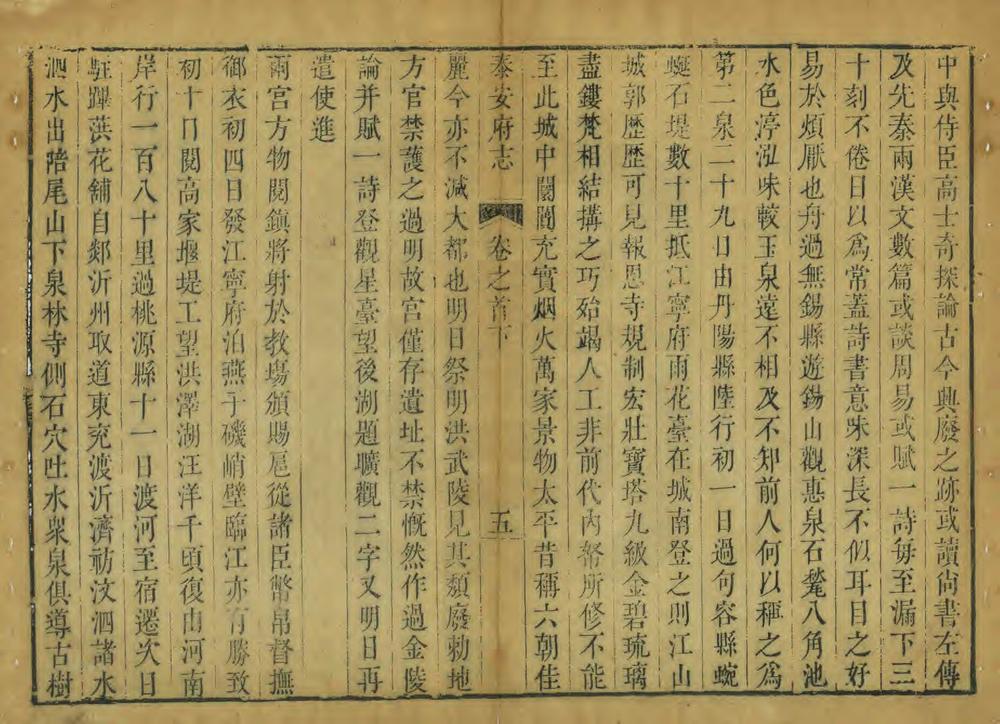 中與侍臣高士奇探論古今興廢之跡或讀尚書左傳
及先秦兩漢文數篇或談周易或賦一詩每至漏下三
十刻不倦日以爲常蓋詩書意味深長不似耳目之好
易於煩厭也舟過無錫縣遊錫山觀惠泉石甃八角池
水色渟泓味較玉泉遠不相及不知前人何以稱之爲
第二泉二十九日由丹陽縣陸行初一日過句容縣蜿
蜒石堤數十里抵江寧府雨花臺在城南登之則江山
城郭歷歷可見報恩寺規制宏壯寶塔九級金碧琉璃
盡鏤梵相結搆之巧殆竭人工非前代內帑所修不能
至此城中闤闠充實烟火萬家景物太平昔稱六朝佳
泰安府志 卷之首下 五
麗今亦不減大都也明日祭明洪武陵見其頹廢勅地
方官禁護之過明故宮僅存遺址不禁慨然作過金陵
論并賦一詩登觀星臺望後湖題曠觀二字又明日再
遣使進
兩宮方物閱鎮將射於教場頒賜扈從諸臣幣帛督撫
御衣初四日發江寧府泊燕子磯峭壁臨江亦有勝致
初十日閱高家堰堤工望洪澤湖汪洋千頃復由河南
岸行一百八十里過桃源縣十一日渡河至宿遷次日
駐蹕葓花舖自郯沂州取道東兖渡沂濟祊汶泗諸水
泗水出陪尾山下泉林寺側石穴吐水衆泉俱導古樹